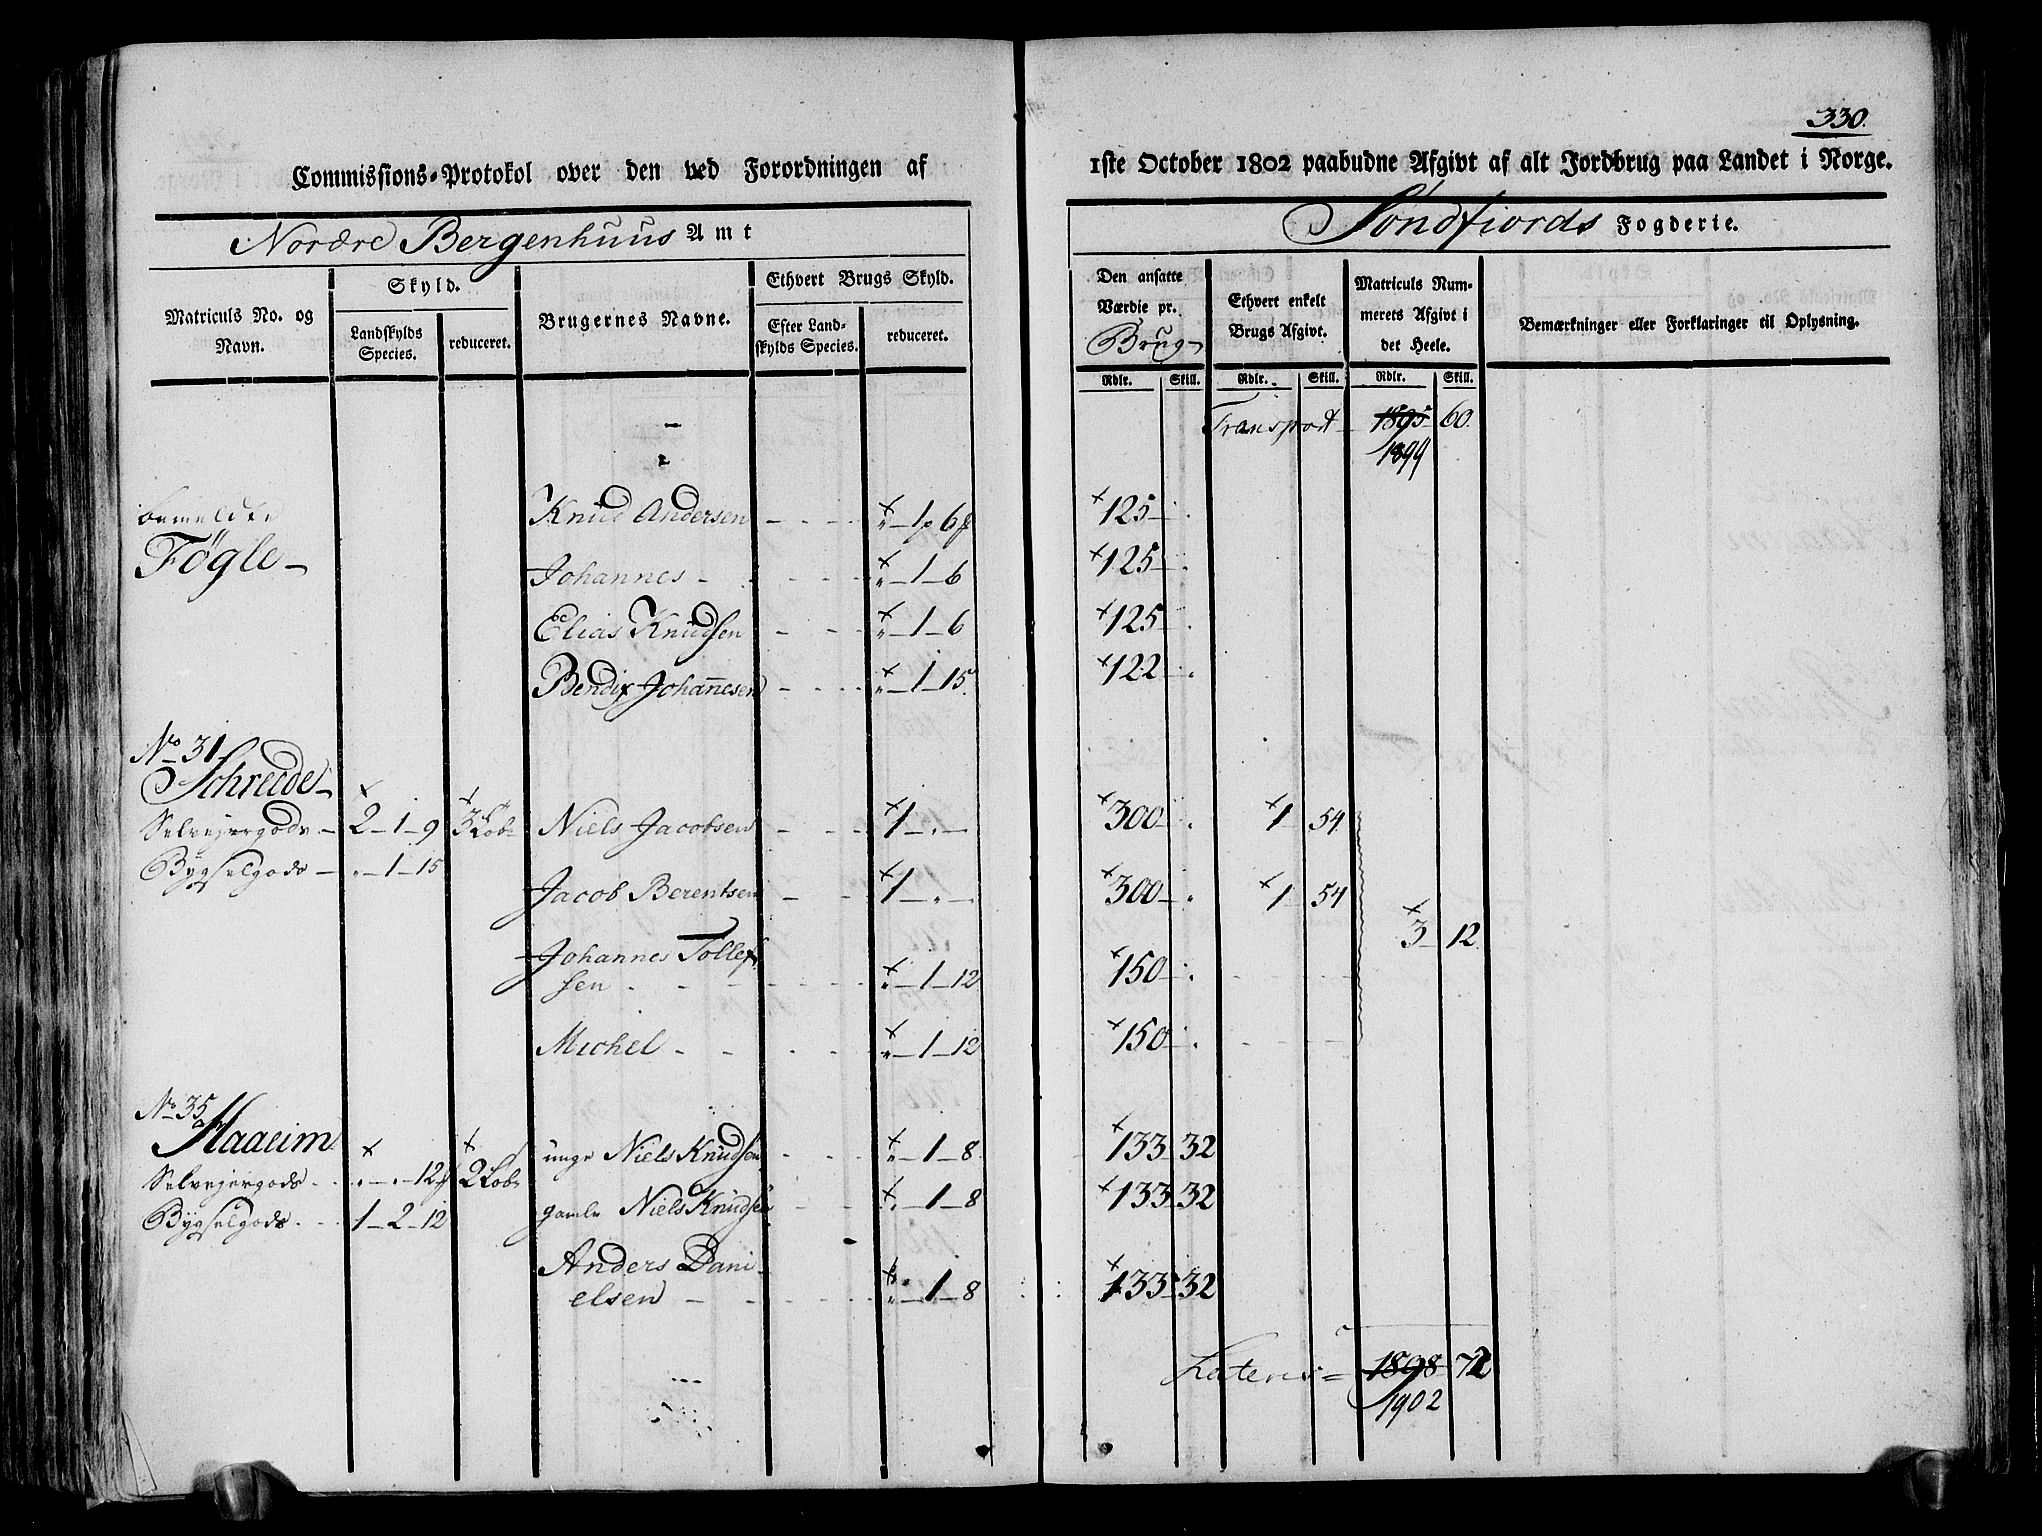 330.
Commissions-Protokol over den ved Forordningen af
1ste October 1802 paabudne Afgivt af alt Jordbrug paa Landet i Norge.
Nordre Bergenhuus Amt
Søndfiords Fogderie.
Matriculs No. og Navn.
Skyld.
Landskylds Species.
reduceret.
Brugernes Navne.
Ethvert Brugs Skyld.
Efter Landskylds Species.
reduceret.
Den ansatte Værdie pr. Brug
Ethvert enkelt Brugs Afgivt.
Matriculs Nummerets Afgivt i det Heele.
Bemærkninger eller Forklaringer til Oplysning.
Rdlr. Skill. Rdlr. Skill. Rdlr. Skill.
Transport 1895 60.
1899
bemeldte Knud Andersen - - - " - 1 p 6 f 125 - "
Føgle - Johannes - - - " - 1 - 6 125 - "
Elias Knudsen - - - " - 1 - 6 125 - "
Bendix Johannesen - - - " - 1 - 15. 122 - "
No 31
Schreede -
Selvejergods - 2 - 1 - 9 3 Løb Niels Jacobsen - - - 1 - " - 300 - " 1 54
Bygselgods - " - 1 - 15
Jacob Berentsen - - - 1 - " - 300 - " 1 54
3 12
Johannes Tollef
sen - - - " - 1 - 12 150 - "
Michel - - - " - 1 - 12 150 - "
No 35
Haaeim
unge Niels Knudsen - - " - 1 - 8 133 32
Selvejergods - " - " - 12 2 Løb
Bygselgods - 1 - 2 - 12 gamle Niels Knudsen - - " - 1 - 8 133 32
Anders Dani
elsen - - - " - 1 - 8 133 32
Lateris = 1898 72
1902